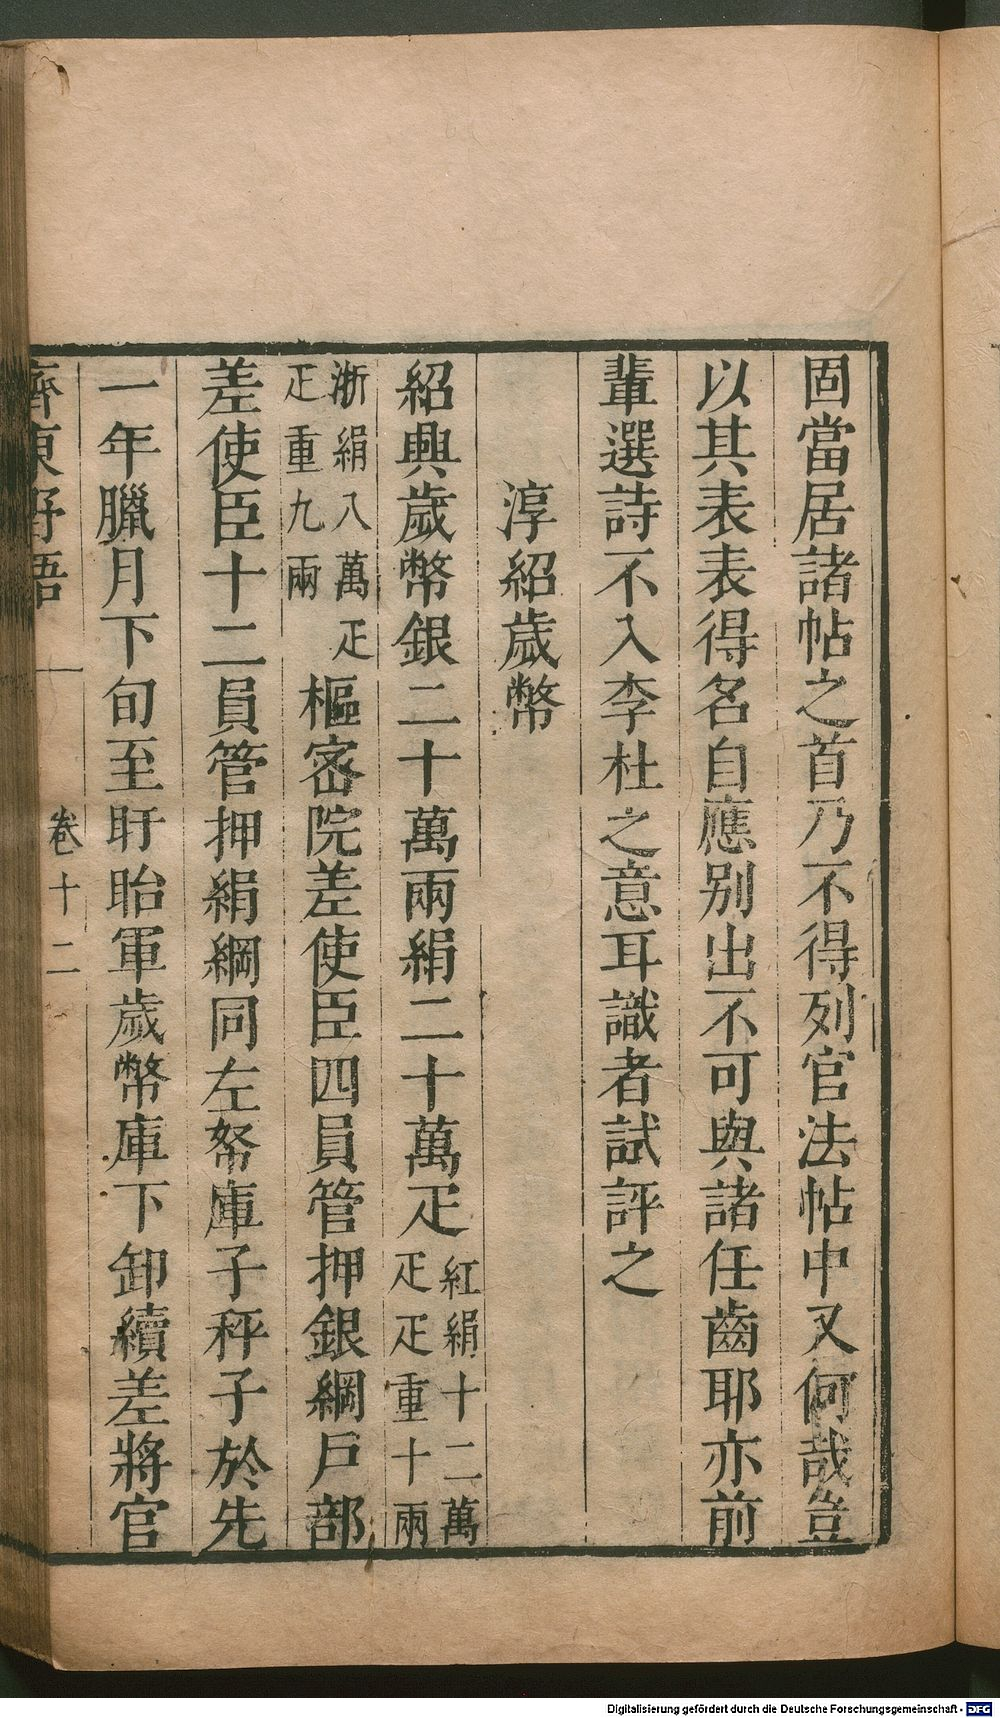 固當居諸帖之首乃不得列官法帖中又何哉豈
以其表表得名自應别出不可與諸任齒耶亦前
輩選詩不入李杜之意耳識者試評之
淳紹歲幣
紹興歲幣銀二十萬兩絹二十萬疋紅絹十二萬疋疋重十兩
浙絹八萬疋疋重九兩樞宻院差使臣四員管押銀綱戸部
差使臣十二員管押絹綱同左帑庫子秤子於先
一年臘月下旬至盱眙軍歲幣庫下卸續差將官
齊東野語 卷十二
Digitalisierung gefördert durch die Deutsche Forschungsgemeinschaft - DFG